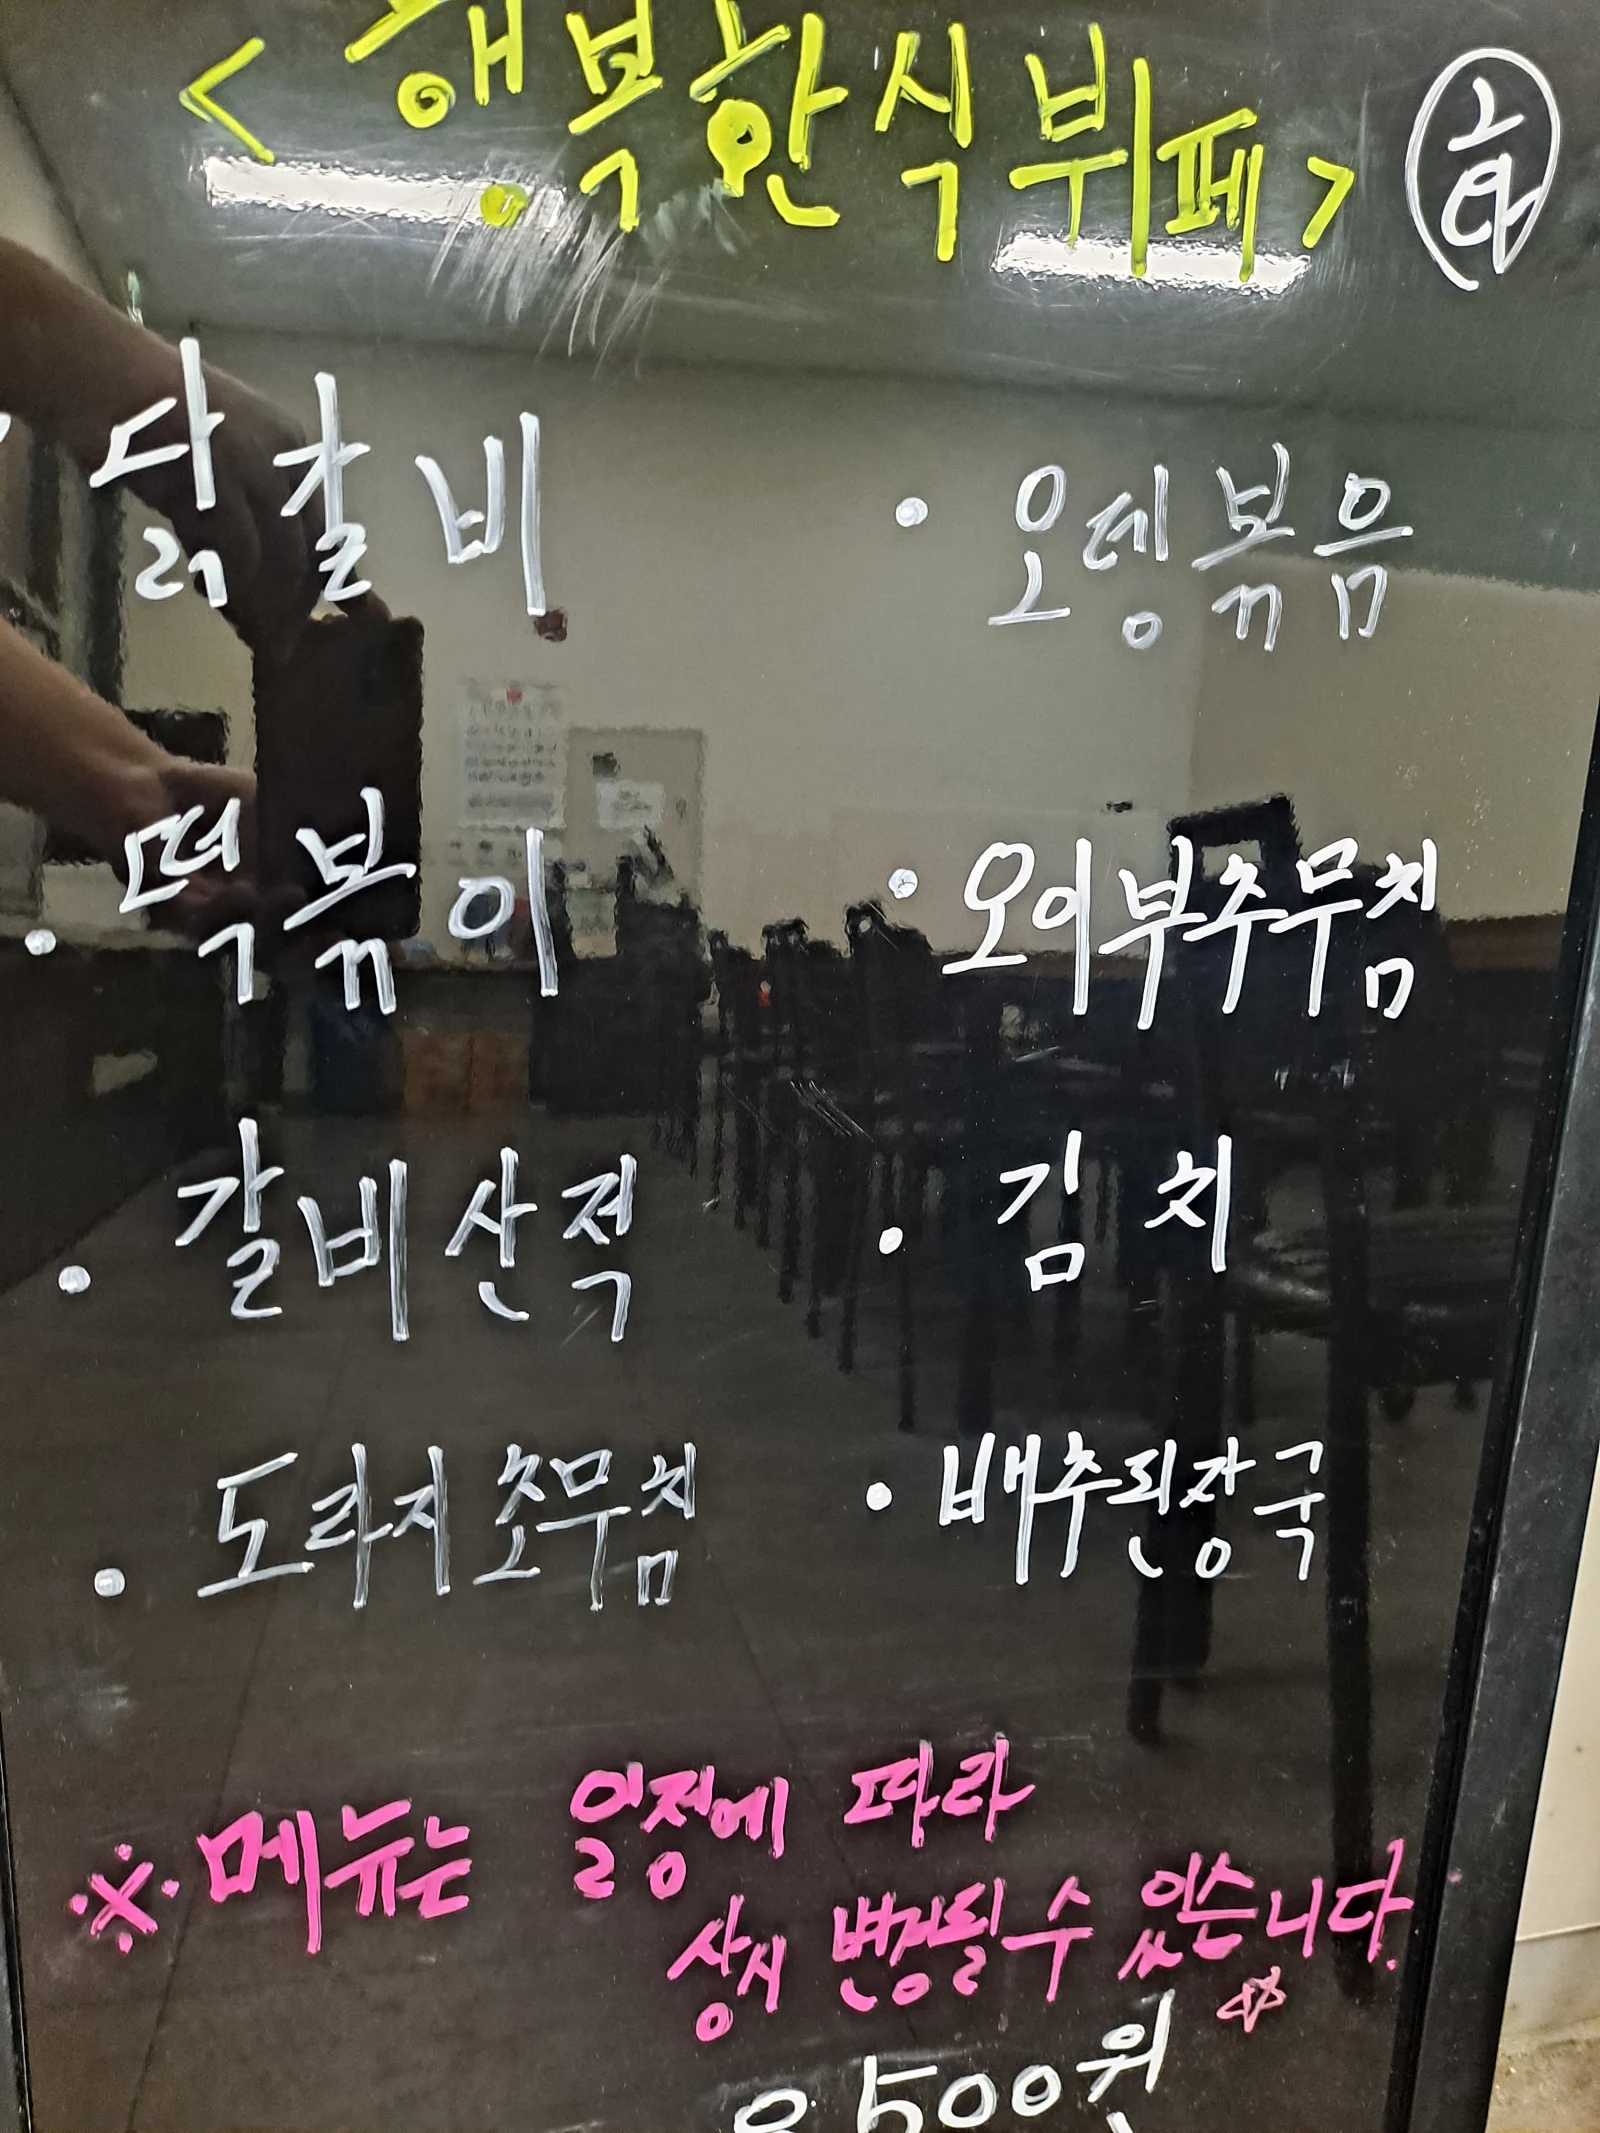 <행복한식뷔페> 화
닭갈비
• 오뎅볶음
• 떡볶이
• 오이부추무침
• 갈비산적
• 김치
• 도라지초무침
• 배추된장국
※메뉴는 일정에 따라
상시 변경될 수 있습니다.
500원